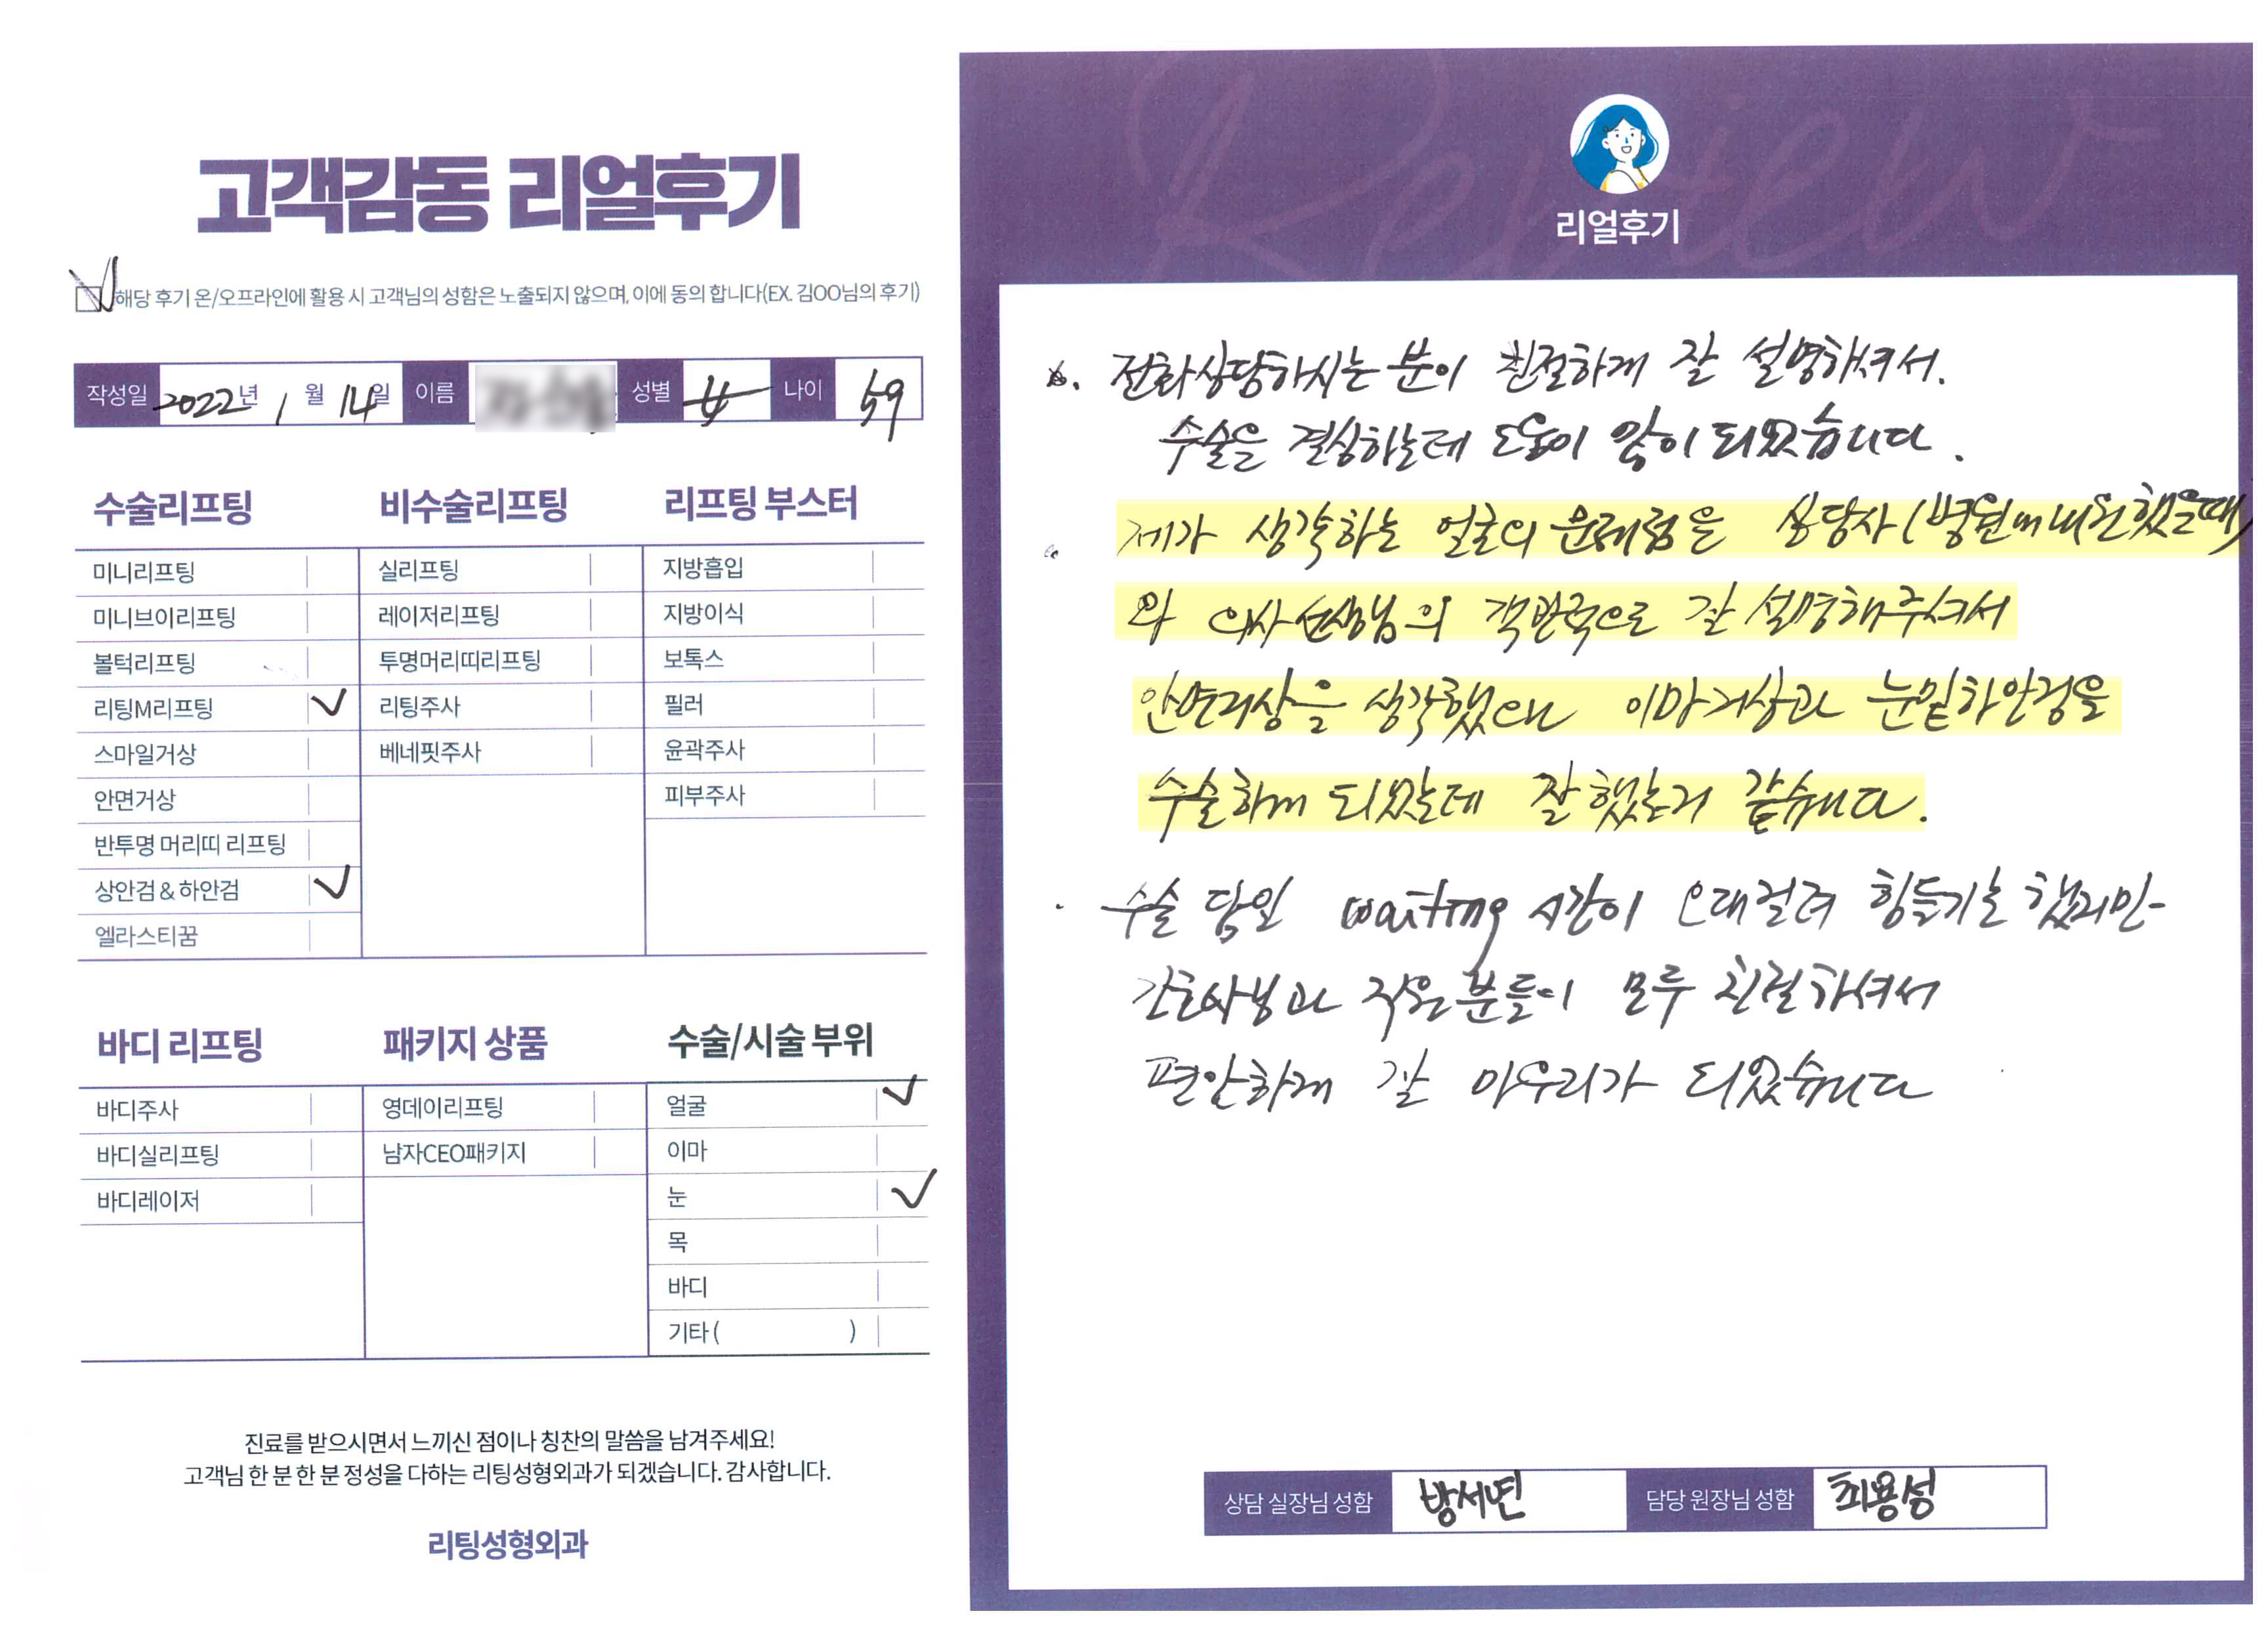 고객감동 리얼후기
해당 후기 온/오프라인에 활용 시 고객님의 성함은 노출되지 않으며, 이에 동의 합니다(EX. 김OO님의 후기)
작성일 2022년 1월 14일 이름 성별 女 나이 59
수술리프팅
미니리프팅
미니브이리프팅
볼턱리프팅
리팅M리프팅
스마일거상
안면거상
반투명 머리띠 리프팅
상안검 & 하안검
엘라스티꿈
비수술리프팅
실리프팅
레이저리프팅
투명머리띠리프팅
리팅주사
베네핏주사
리프팅 부스터
지방흡입
지방이식
보톡스
필러
윤곽주사
피부주사
바디 리프팅
바디주사
바디실리프팅
바디레이저
패키지 상품
영데이리프팅
남자CEO패키지
수술/시술 부위
얼굴
이마
눈
목
바디
기타 ( )
진료를 받으시면서 느끼신 점이나 칭찬의 말씀을 남겨주세요!
고객님 한 분 한 분 정성을 다하는 리팅성형외과가 되겠습니다. 감사합니다.
리팅성형외과
Review
리얼후기
전화상담하시는 분이 친절하게 잘 설명해셔서.
수술을 결심하는데 도움이 많이 되었습니다.
제가 생각하는 얼굴의 문제점을 상담사(병원에 내원했을때)
와 의사선생님의 객관적으로 잘 설명해주셔서
안면거상을 생각했으나 이마거상과 눈밑하안검을
수술하게 되었는데 잘했는거 같습니다.
수술 당일 waiting 시간이 오래걸려 힘들기는 했지만
간호사님과 직원분들이 모두 친절하셔서
편안하게 잘 마무리가 되었습니다
상담 실장님 성함 방서연 담당 원장님 성함 최용성